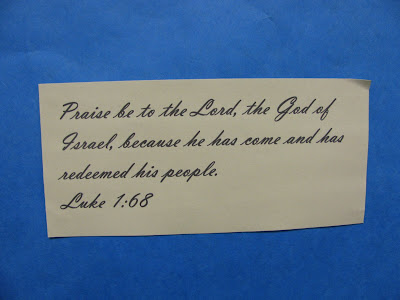 Praise be to the Lord, the God of
Israel, because he has come and has
redeemed his people.
Luke 1:68